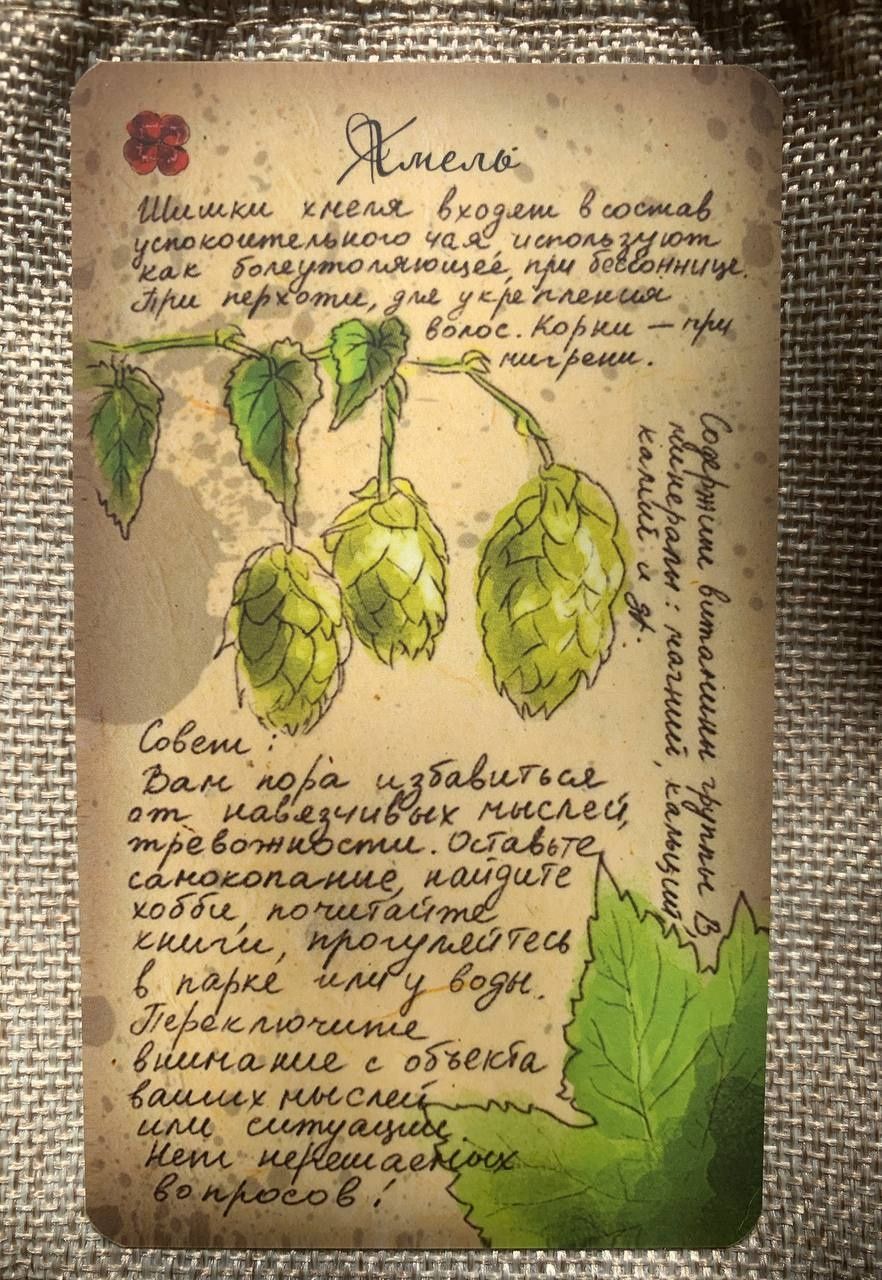 Хмель
Шишки хмеля входят в состав
успокоительного чая, используют
как болеутоляющее, при бессоннице.
При перхоти, для укрепления
волос. Корни – при
мигрени.
Содержит витамины группы В,
минералы: магний, кальций,
калий и др.
Совет:
Вам пора избавиться
от навязчивых мыслей,
тревожности. Оставьте
самокопание, найдите
хобби, почитайте
книги, прогуляйтесь
в парке или у воды.
Переключите
внимание с объекта
ваших мыслей
или ситуации.
Нет нерешаемых
вопросов!